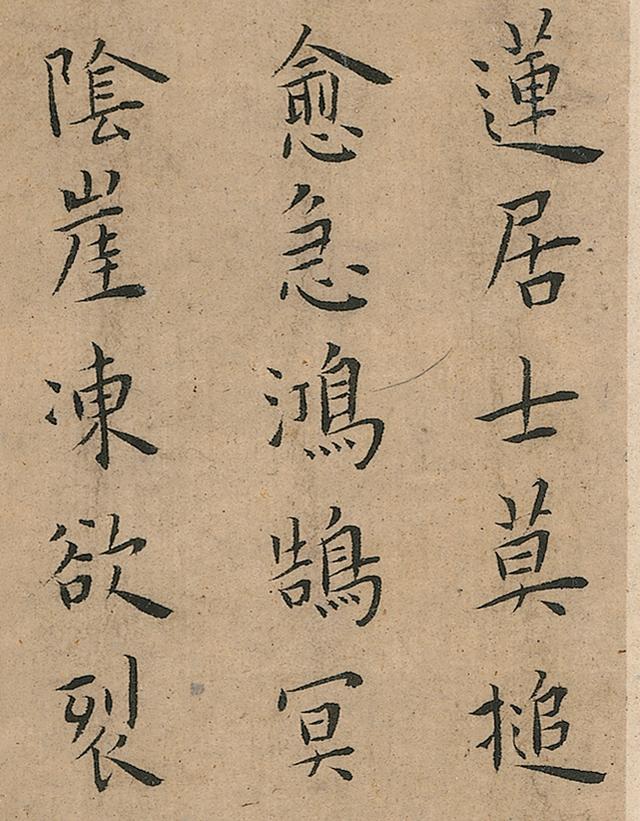 蓮居士莫搥
愈急鴻鵠冥
陰崖凍欲裂